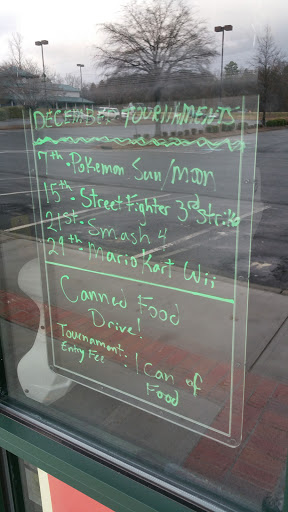 DECEMBER TOURNAMENTS
7th • Pokemon Sun/Moon
15th • Street Fighter 3rd Strike
21st • Smash 4
29th • Mario Kart Wii
Canned Food
Drive!
Tournament
Entry Fee • 1 Can of
Food